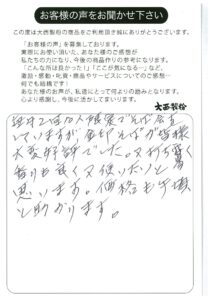 お客様の声をお聞かせ下さい
この度は大西製粉の商品をご利用頂き誠にありがとうございます。
「お客様の声」を募集しております。
実際にお使い頂いた、あなた様のご感想が
私たちの力になり、今後の商品作りの参考になります。
「こんな所は良かった!」「ここが気になる…」など、
激励・感動・叱責・商品やサービスについてのご感想…
何でも結構です!
あなた様のお声が、私達にとって何よりの励みとなります。
心より感謝し、今後に活かしてまいります。
大西製粉
していますが
大変好評でした。又
香りも良く又使いたいと
思います。価格も手頃
と助かります。